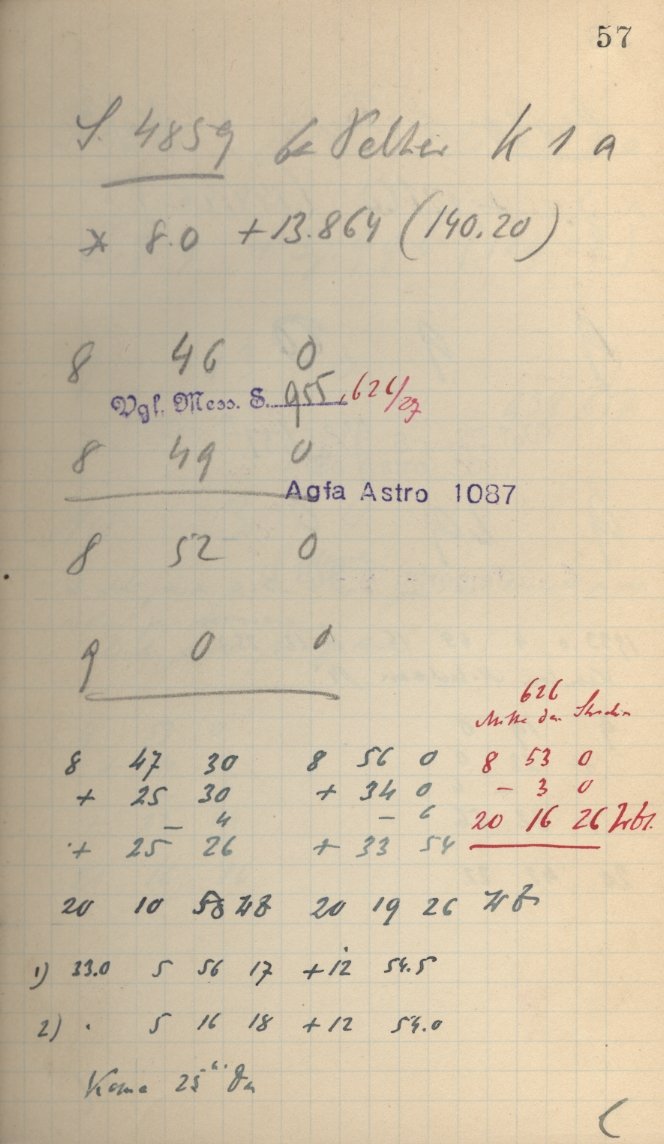 57
S. 4859 K 1 a
* 8.0 +13.864 (140.20)
8 46 0
Vgl. Mess. S. 955, 626/27
8 49 0
Agfa Astro 1087
8 52 0
9 0 0
626
Mitte der
8 47 30 8 56 0 8 53 0
+ 25 30 + 34 0 - 3 0
- 4 - 6 20 16 26
+ 25 26 + 33 54
20 10 58 20 19 26
1) 33.0 5 56 17 +12 54.5
2) . 5 16 18 +12 54.0
Koma 25"